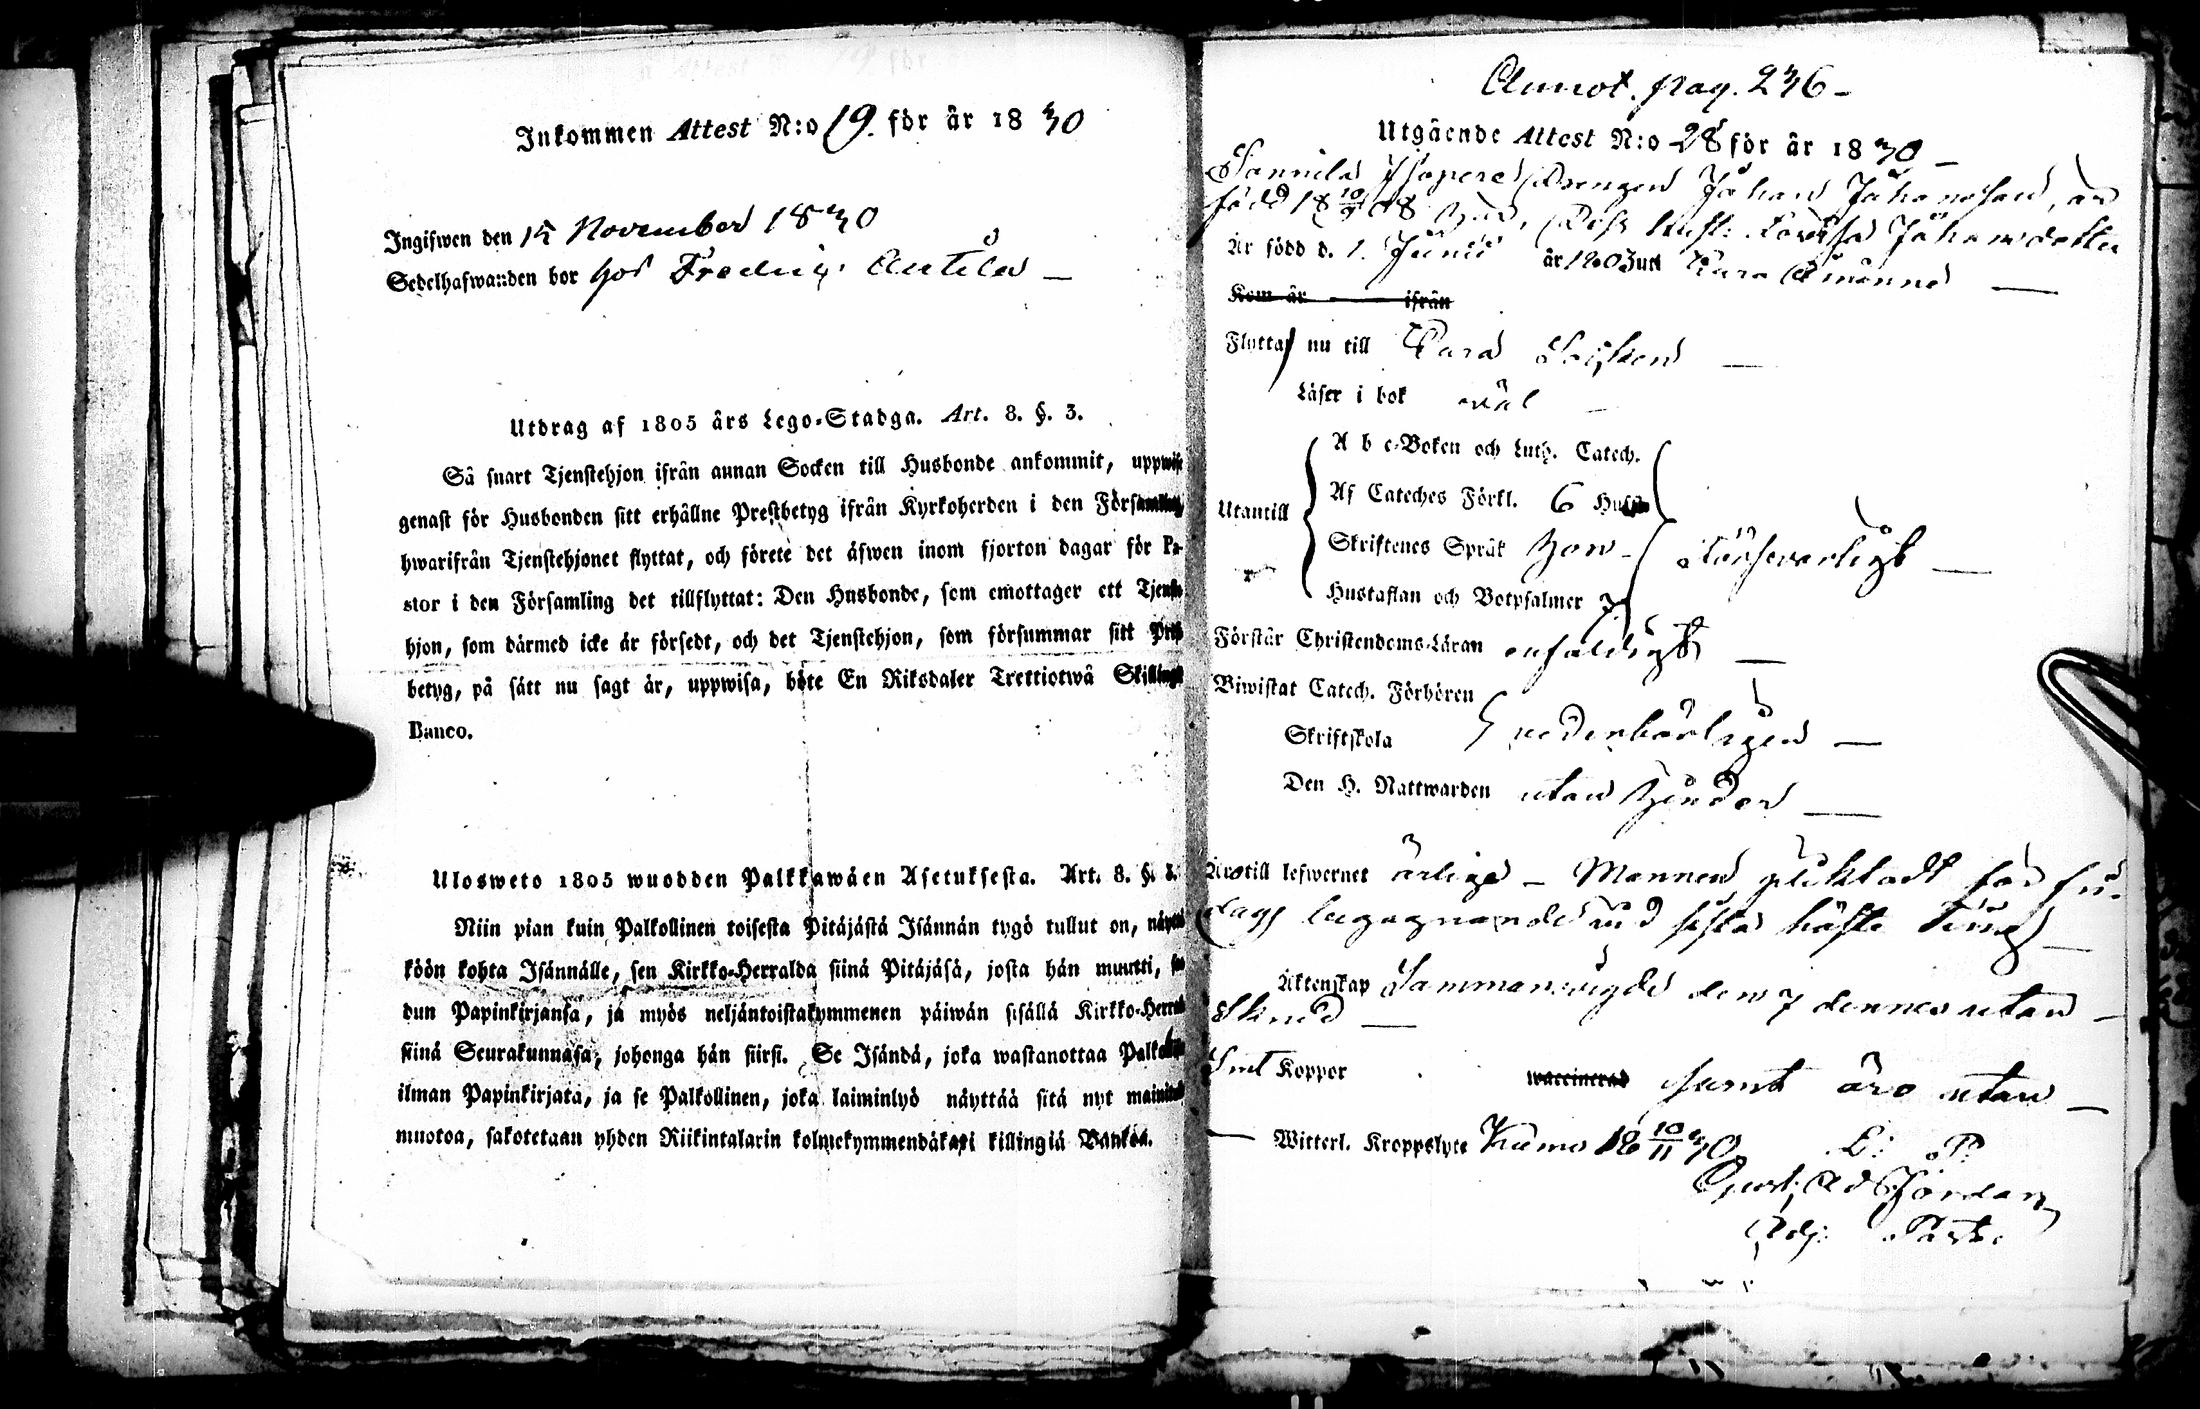 Inkommen Attest N:o 19. för år 1830
Ingifwen den 15 November 1830
Sedelhafwanden bor hos Fredric Antila —
Utdrag af 1805 års Lego-Stadga. Art. 8. §. 3.
Så snart Tjenstehjon ifrån annan Socken till Husbonde ankommit, uppwise
genast för Husbonden sitt erhållne Prestbetyg ifrån Kyrkoherden i den Församling
hwarifrån Tjenstehjonet flyttat, och förete det äfwen inom fjorton dagar för Pa-
stor i den Församling det tillflyttat: Den Husbonde, som emottager ett Tjenste
hjon, som därmed icke är försedt, och det Tjenstehjon, som försummar sitt Prest
betyg, på sätt nu sagt är, uppwisa, böte En Riksdaler Trettiotwå Skillingar
Banco.
Ulosweto 1805 wuodden Palkkawäen Asetuksesta. Art. 8. §. 3.
Niin pian kuin Palkollinen toisesta Pitäjästä Isännän tygö tullut on, näyttä
köön kohta Isännälle, sen Kirkko-Herralda siinä Pitäjäsä, josta hän muutti, sa
dun Papinkirjansa, ja myös neljäntoistakymmenen päiwän sisällä Kirkko-Herral
siinä Seurakunnasa, johonga hän siirsi. Se Isändä, joka wastanottaa Palkolli
ilman Papinkirjata, ja se Palkollinen, joka laiminlyö näyttää sitä nyt mainitul
muotoa, sakotetaan yhden Riikintalarin kolmekymmendäkaxi killingiä Bankoa.
Annot. pag. 236 —
Utgående Attest N:o 28 för år 1830 —
Sonnila Drengen Johan Johansson, är
född 18 10/9 08 här, Dess Hust: Lovisa Johansdotter
Är född d. 1. Junii år 1803 uti
Kom år ifrån
Flyttar nu till Socken —
Läser i bok wäl —
Utantill
A b c-Boken och Luth. Catech.
Af Cateches Förkl. 6 Hufst
Skriftenes Språk hon —
Försvarligt —
Hustaflan och Botpsalmer 7
Förstår Christendoms-Läran enfaldigt —
Biwistat Catech. Förhören
Skriftskola vederbörligen —
Den H. Nattwarden utan hinder —
Är till lefwernet ärlige — Mannen pliktadt för fri-
dags begagnande vid sista höste Ting —
Äktenskap Sammanvigde den 7 dennes utan —
Skrud —
Smt Koppor waccinerad samt äro utan —
— Witterl. Kroppslyte Kumo 18 10/11 30
Adj: Past.